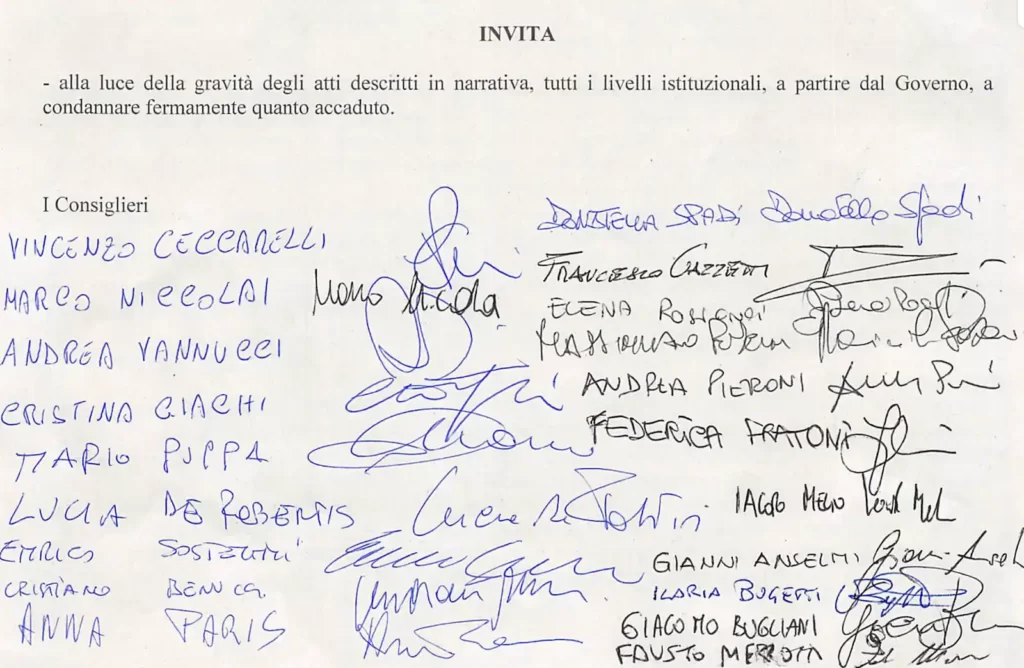 INVITA
- alla luce della gravità degli atti descritti in narrativa, tutti i livelli istituzionali, a partire dal Governo, a
condannare fermamente quanto accaduto.
I Consiglieri
VINCENZO CECCARELLI
MARCO NICCOLAI
ANDREA VANNUCCI
CRISTINA GIACHI
MARIO PUPPA
LUCIA DE ROBERTIS
ENRICO SOSTEGNI
CRISTIANO BENUCCI
ANNA PARIS
DONATELLA SPADI Donatella Spadi
FRANCESCO GAZZETTI
ELENA ROSIGNOLI
MASSIMILIANO
ANDREA PIERONI
FEDERICA FRATONI
IACOPO MELIO
GIANNI ANSELMI
ILARIA BUGETTI
GIACOMO BUGLIANI
FAUSTO MERLOTTI